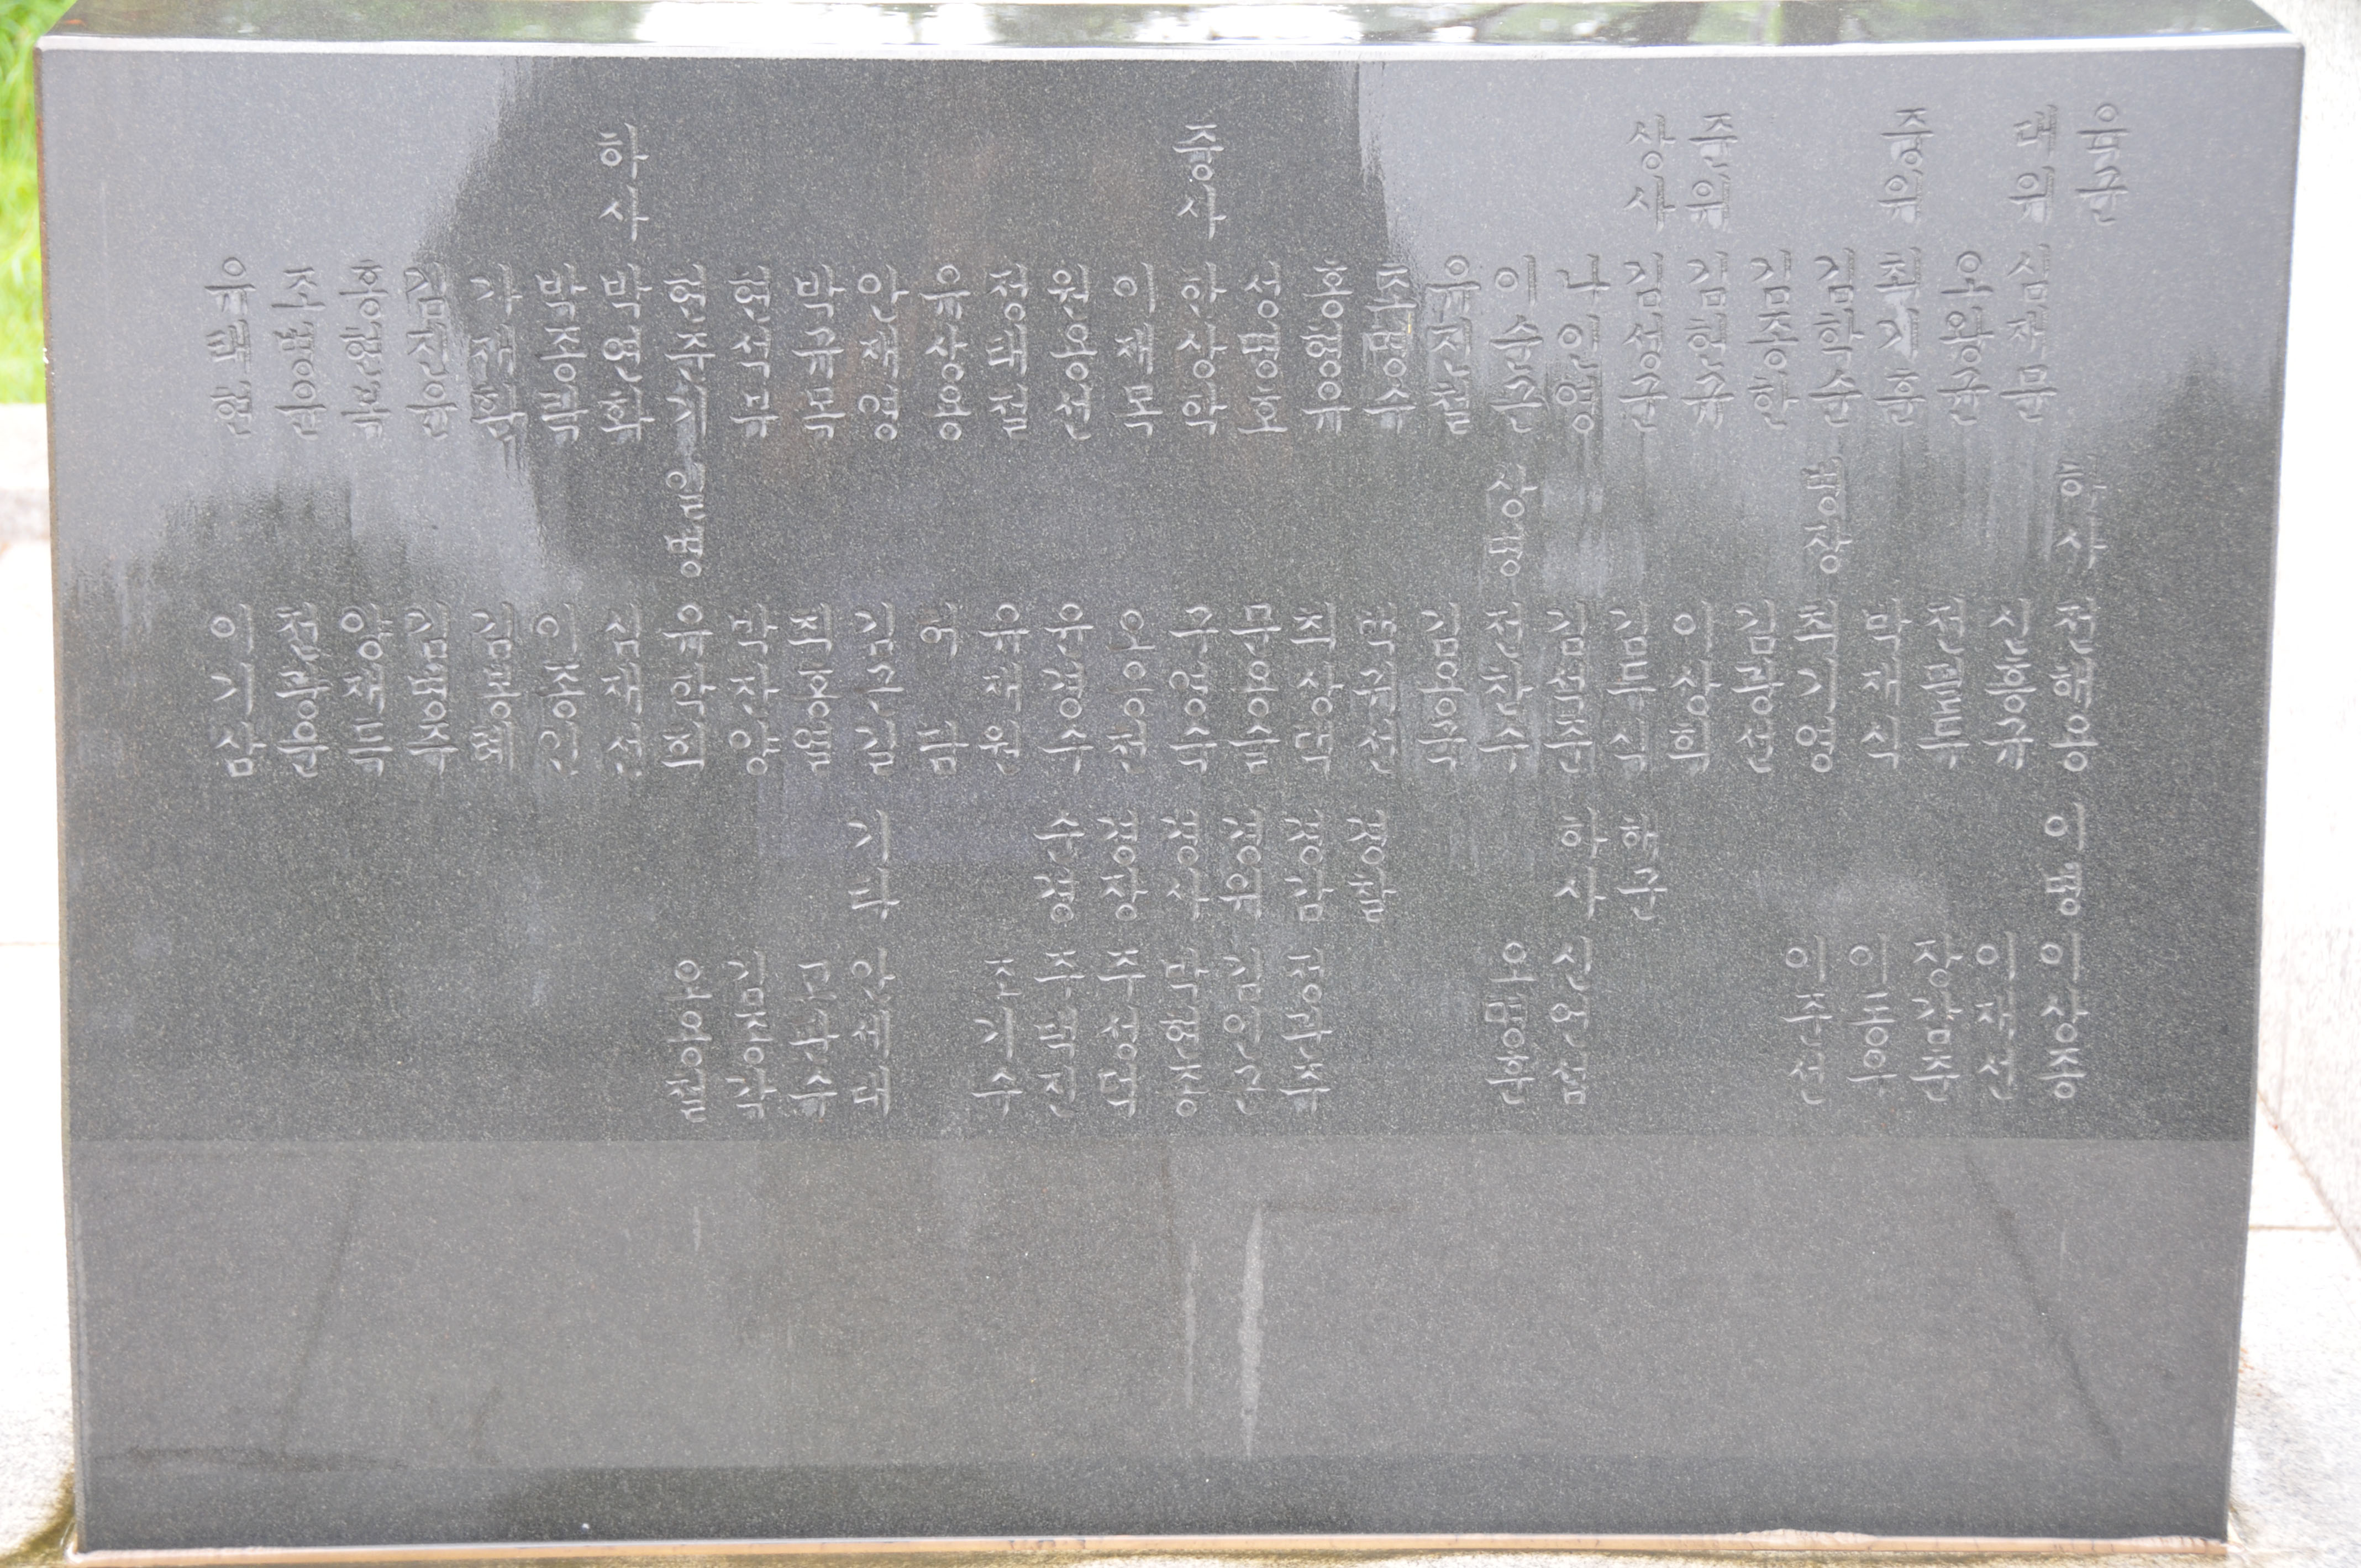 육군
대위 심재문
오왕균
중위 최기훈
김학순
김종한
준위 김헌규
상사 김성균
나인영
이순근
유진철
조명수
홍형유
성명호
중사 한상악
이재목
원용선
정태철
유상용
안재영
박규독
현석무
현준기
하사 박연화
박종락
가재학
김진완
홍완복
유태현
하사 전해용
신흥규
전필두
박재식
병장 최기영
김광선
이상희
김두식
김석준
상병 전찬수
김용국
백귀선
최상덕
문용슬
구영숙
오응천
윤경수
유재원
어담
김근길
최홍열
박찬양
일병 유악희
심재선
이종긴
김통혜
김명주
양재득
정광윤
이기삼
이병 이상종
이재선
장갑준
이동우
이준선
해군
하사 신언섭
오명훈
경찰
경감 정관주
경위 김인근
경사 박현종
경장 주성덕
순경 주택진
조기수
기타 안세대
고관수
김종각